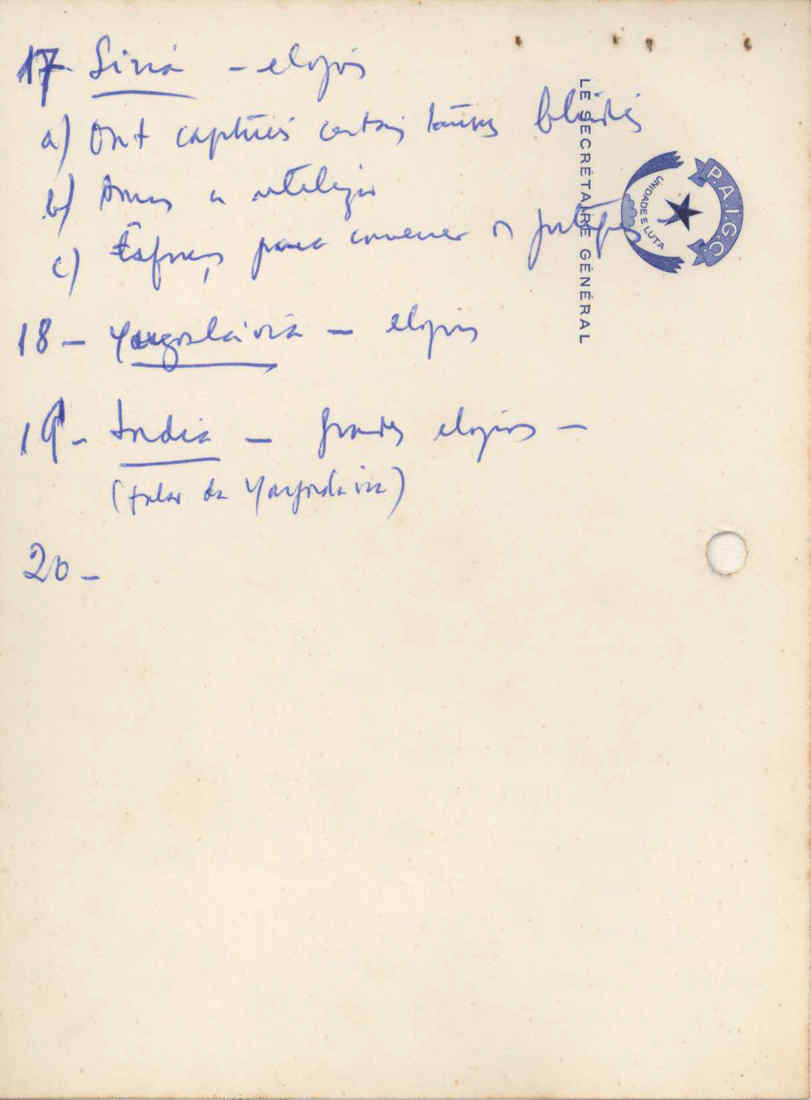 17- Síria - elogios
a) Ont capturés certains
b) Armes
c) Esforço para convencer os
18 - Yougoslávia - elogios
19 - India - grandes elogios -
(falar da Yougoslavia)
20 -
LE SECRÉTAIRE GÉNÉRAL
P.A.I.G.C.
UNIDADE E LUTA